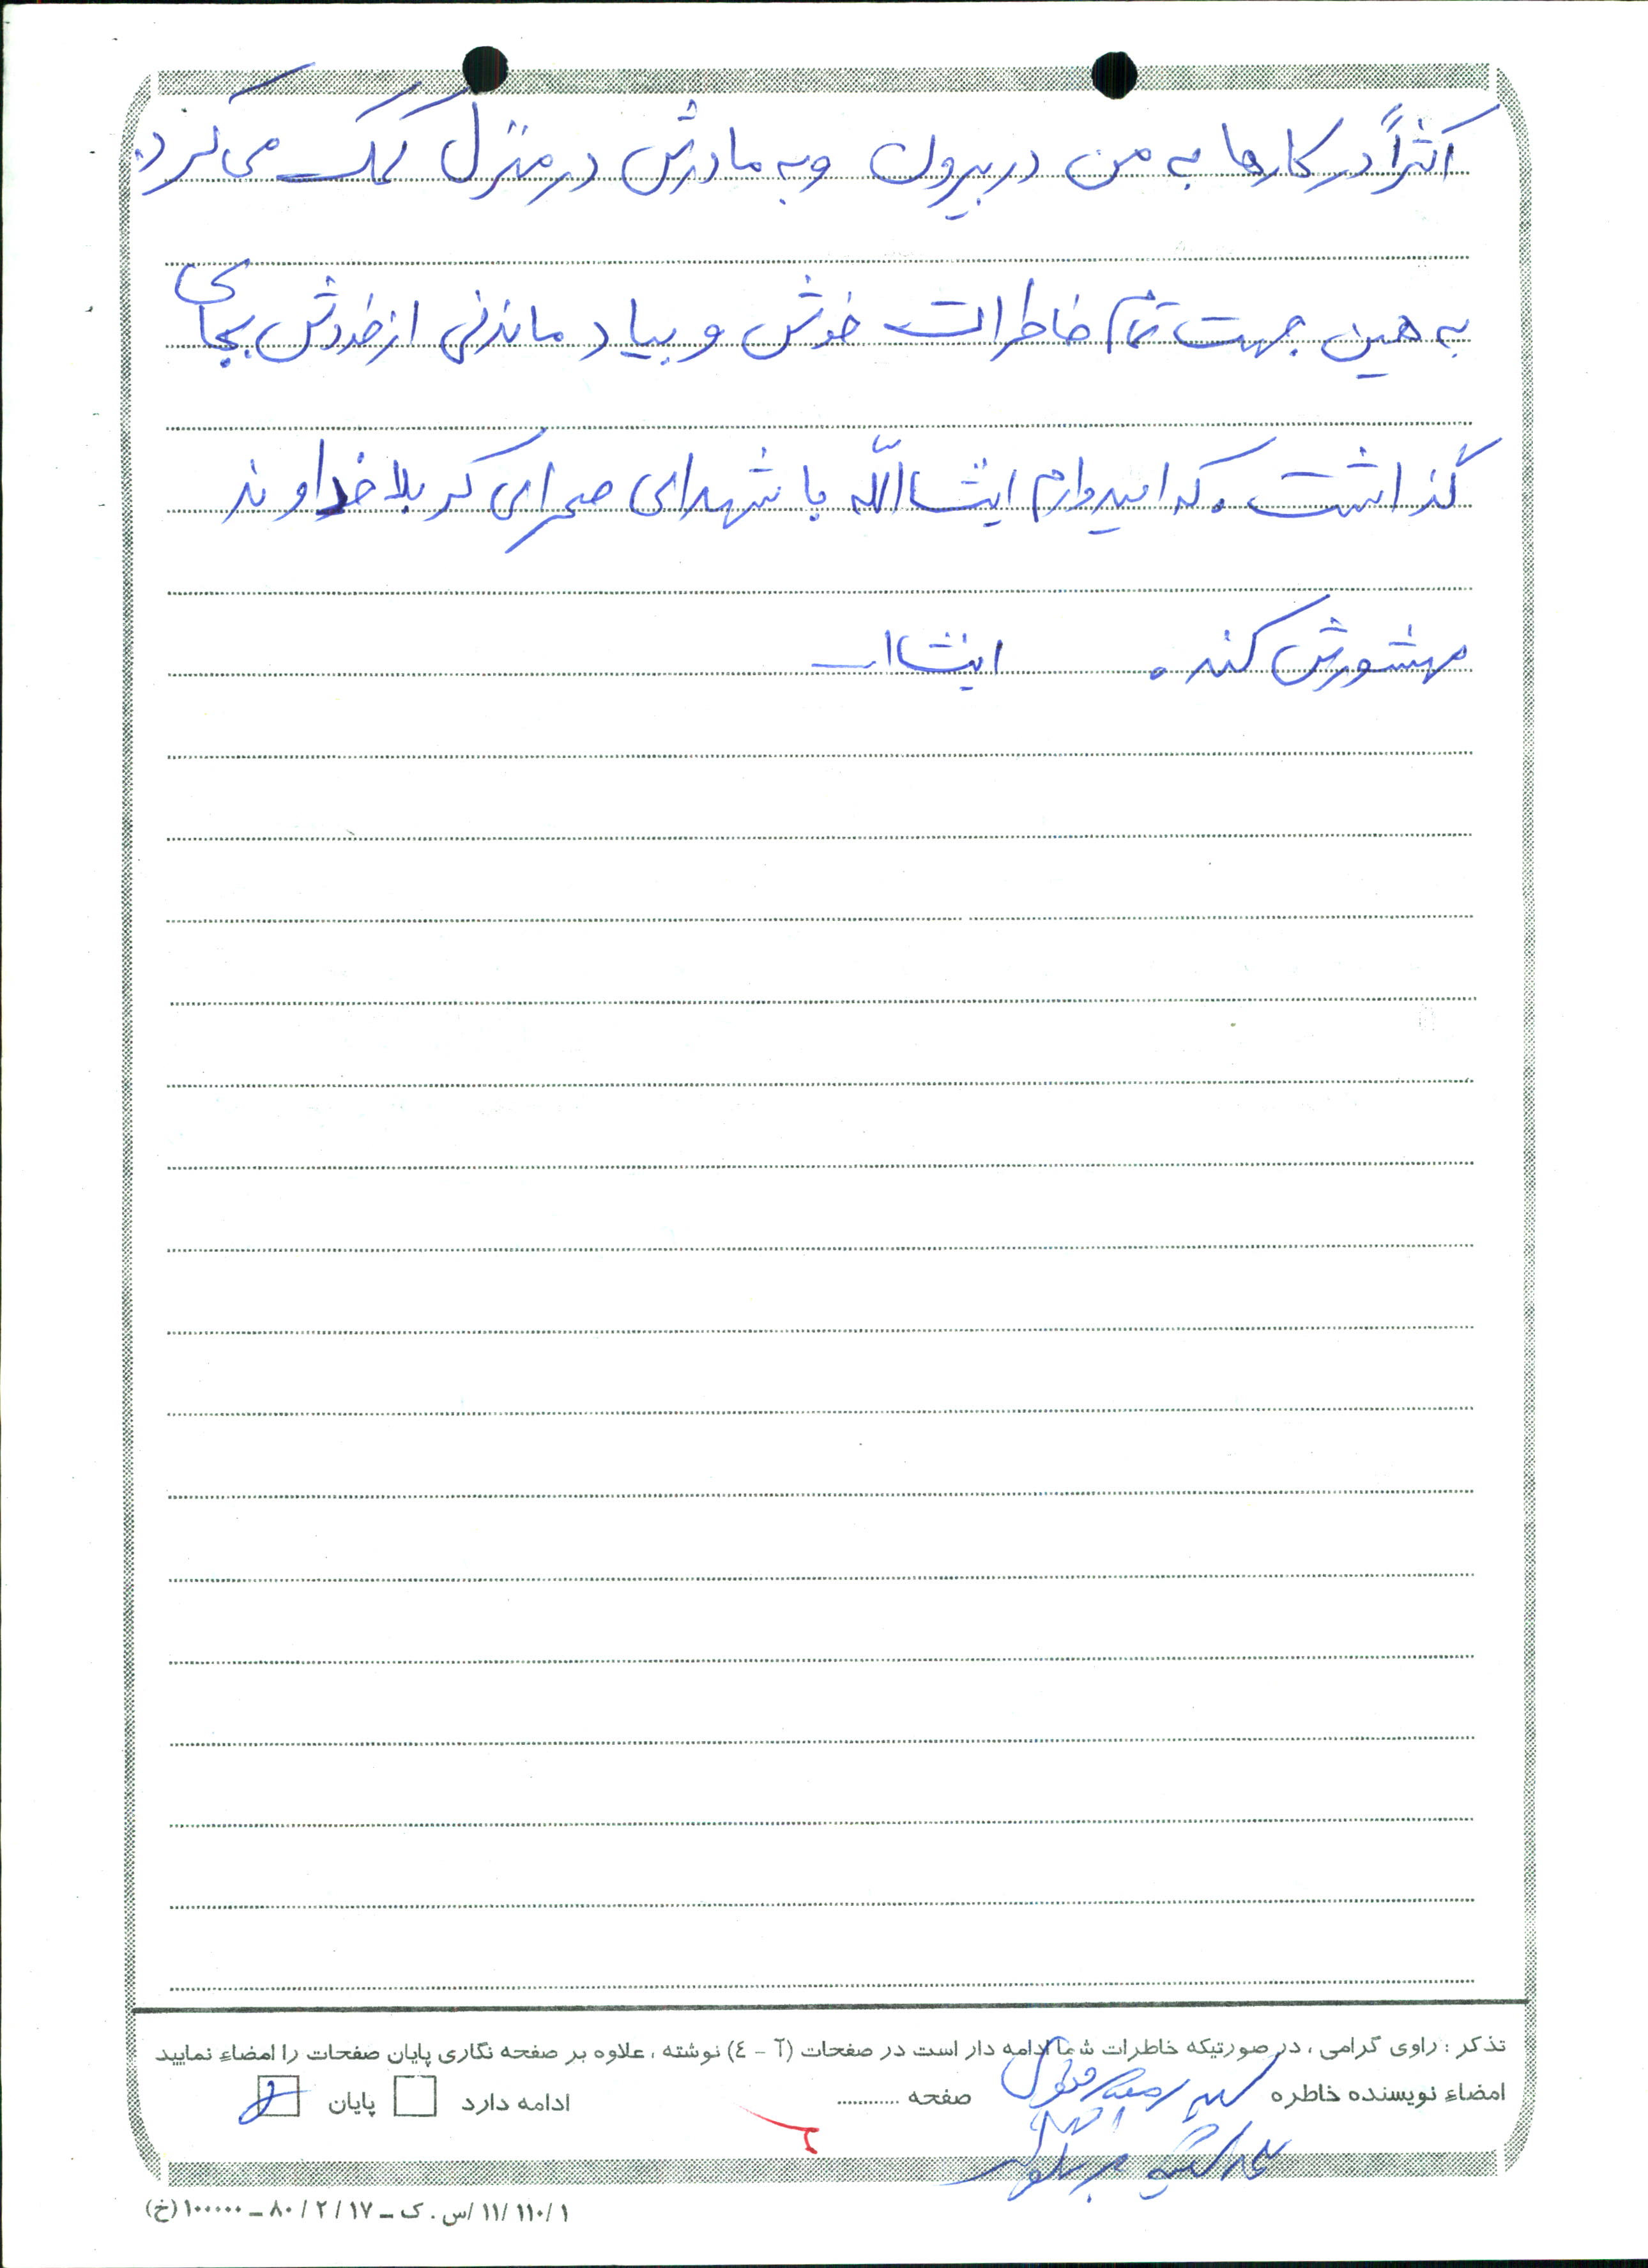 اکثراً در کارها به من در بیرون و به مادرش در منزل کمک می کرد.
به همین جهت تمام خاطرات خوش و بیاد ماندنی از خودش بجای
گذاشت. که امیدوارم انشاالله با شهدای صحرای کربلا خداوند
مهشورش کند. انشاا
تذکر : راوی گرامی ، در صورتیکه خاطرات شما ادامه دار است در صفحات (آ - ٤) نوشته ، علاوه بر صفحه نگاری پایان صفحات را امضاء نمایید
امضاء نویسنده خاطره صفحه ............ ادامه دارد پایان
۱۱/۱۱۰/۱ /س . ک ــ ۸۰/۲/۱۷ ــ ۱۰۰۰۰۰ (خ)